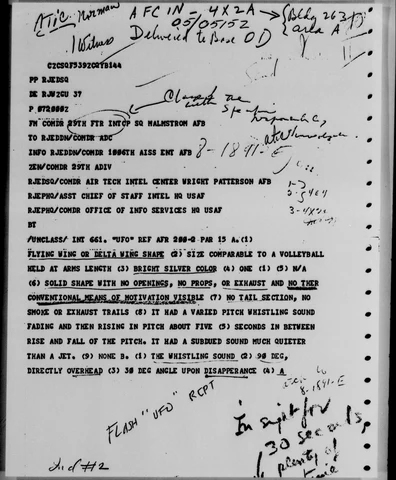 ATIC Norman
AFC IN - 4X2A
05/05/52
Bldg 263
area A
1 Witness
Delivered to Base OD
C2CSQF5392CQYB144
PP RJEDSQ
DE RJWZGU 37
P 072000Z
FM COMDR 29TH FTR INTCP SQ MALMSTROM AFB
TO RJEDDN/COMDR ADC
INFO RJEDDN/COMDR 1006TH AISS ENT AFB
8-1841-E
ZEN/COMDR 29TH ADIV
RJEDSQ/COMDR AIR TECH INTEL CENTER WRIGHT PATTERSON AFB
RJEPHQ/ASST CHIEF OF STAFF INTEL HQ USAF
RJEPHQ/COMDR OFFICE OF INFO SERVICES HQ USAF
BT
/UNCLASS/ INT 661. "UFO" REF AFR 200-2 PAR 15 A.(1)
FLYING WING OR DELTA WING SHAPE (2) SIZE COMPARABLE TO A VOLLEYBALL
HELD AT ARMS LENGTH (3) BRIGHT SILVER COLOR (4) ONE (1) (5) N/A
(6) SOLID SHAPE WITH NO OPENINGS, NO PROPS, OR EXHAUST AND NO THER
CONVENTIONAL MEANS OF MOTIVATION VISIBLE (7) NO TAIL SECTION, NO
SMOKE OR EXHAUST TRAILS (8) IT HAD A VARIED PITCH WHISTLING SOUND
FADING AND THEN RISING IN PITCH ABOUT FIVE (5) SECONDS IN BETWEEN
RISE AND FALL OF THE PITCH. IT HAD A SUBDUED SOUND MUCH QUIETER
THAN A JET. (9) NONE B. (1) THE WHISTLING SOUND (2) 90 DEG,
DIRECTLY OVERHEAD (3) 30 DEG ANGLE UPON DISAPPERANCE (4) A
8-1841-E
FLASH "UFO" RCPT
In sight for
30 seconds,
plenty of
Ind #2